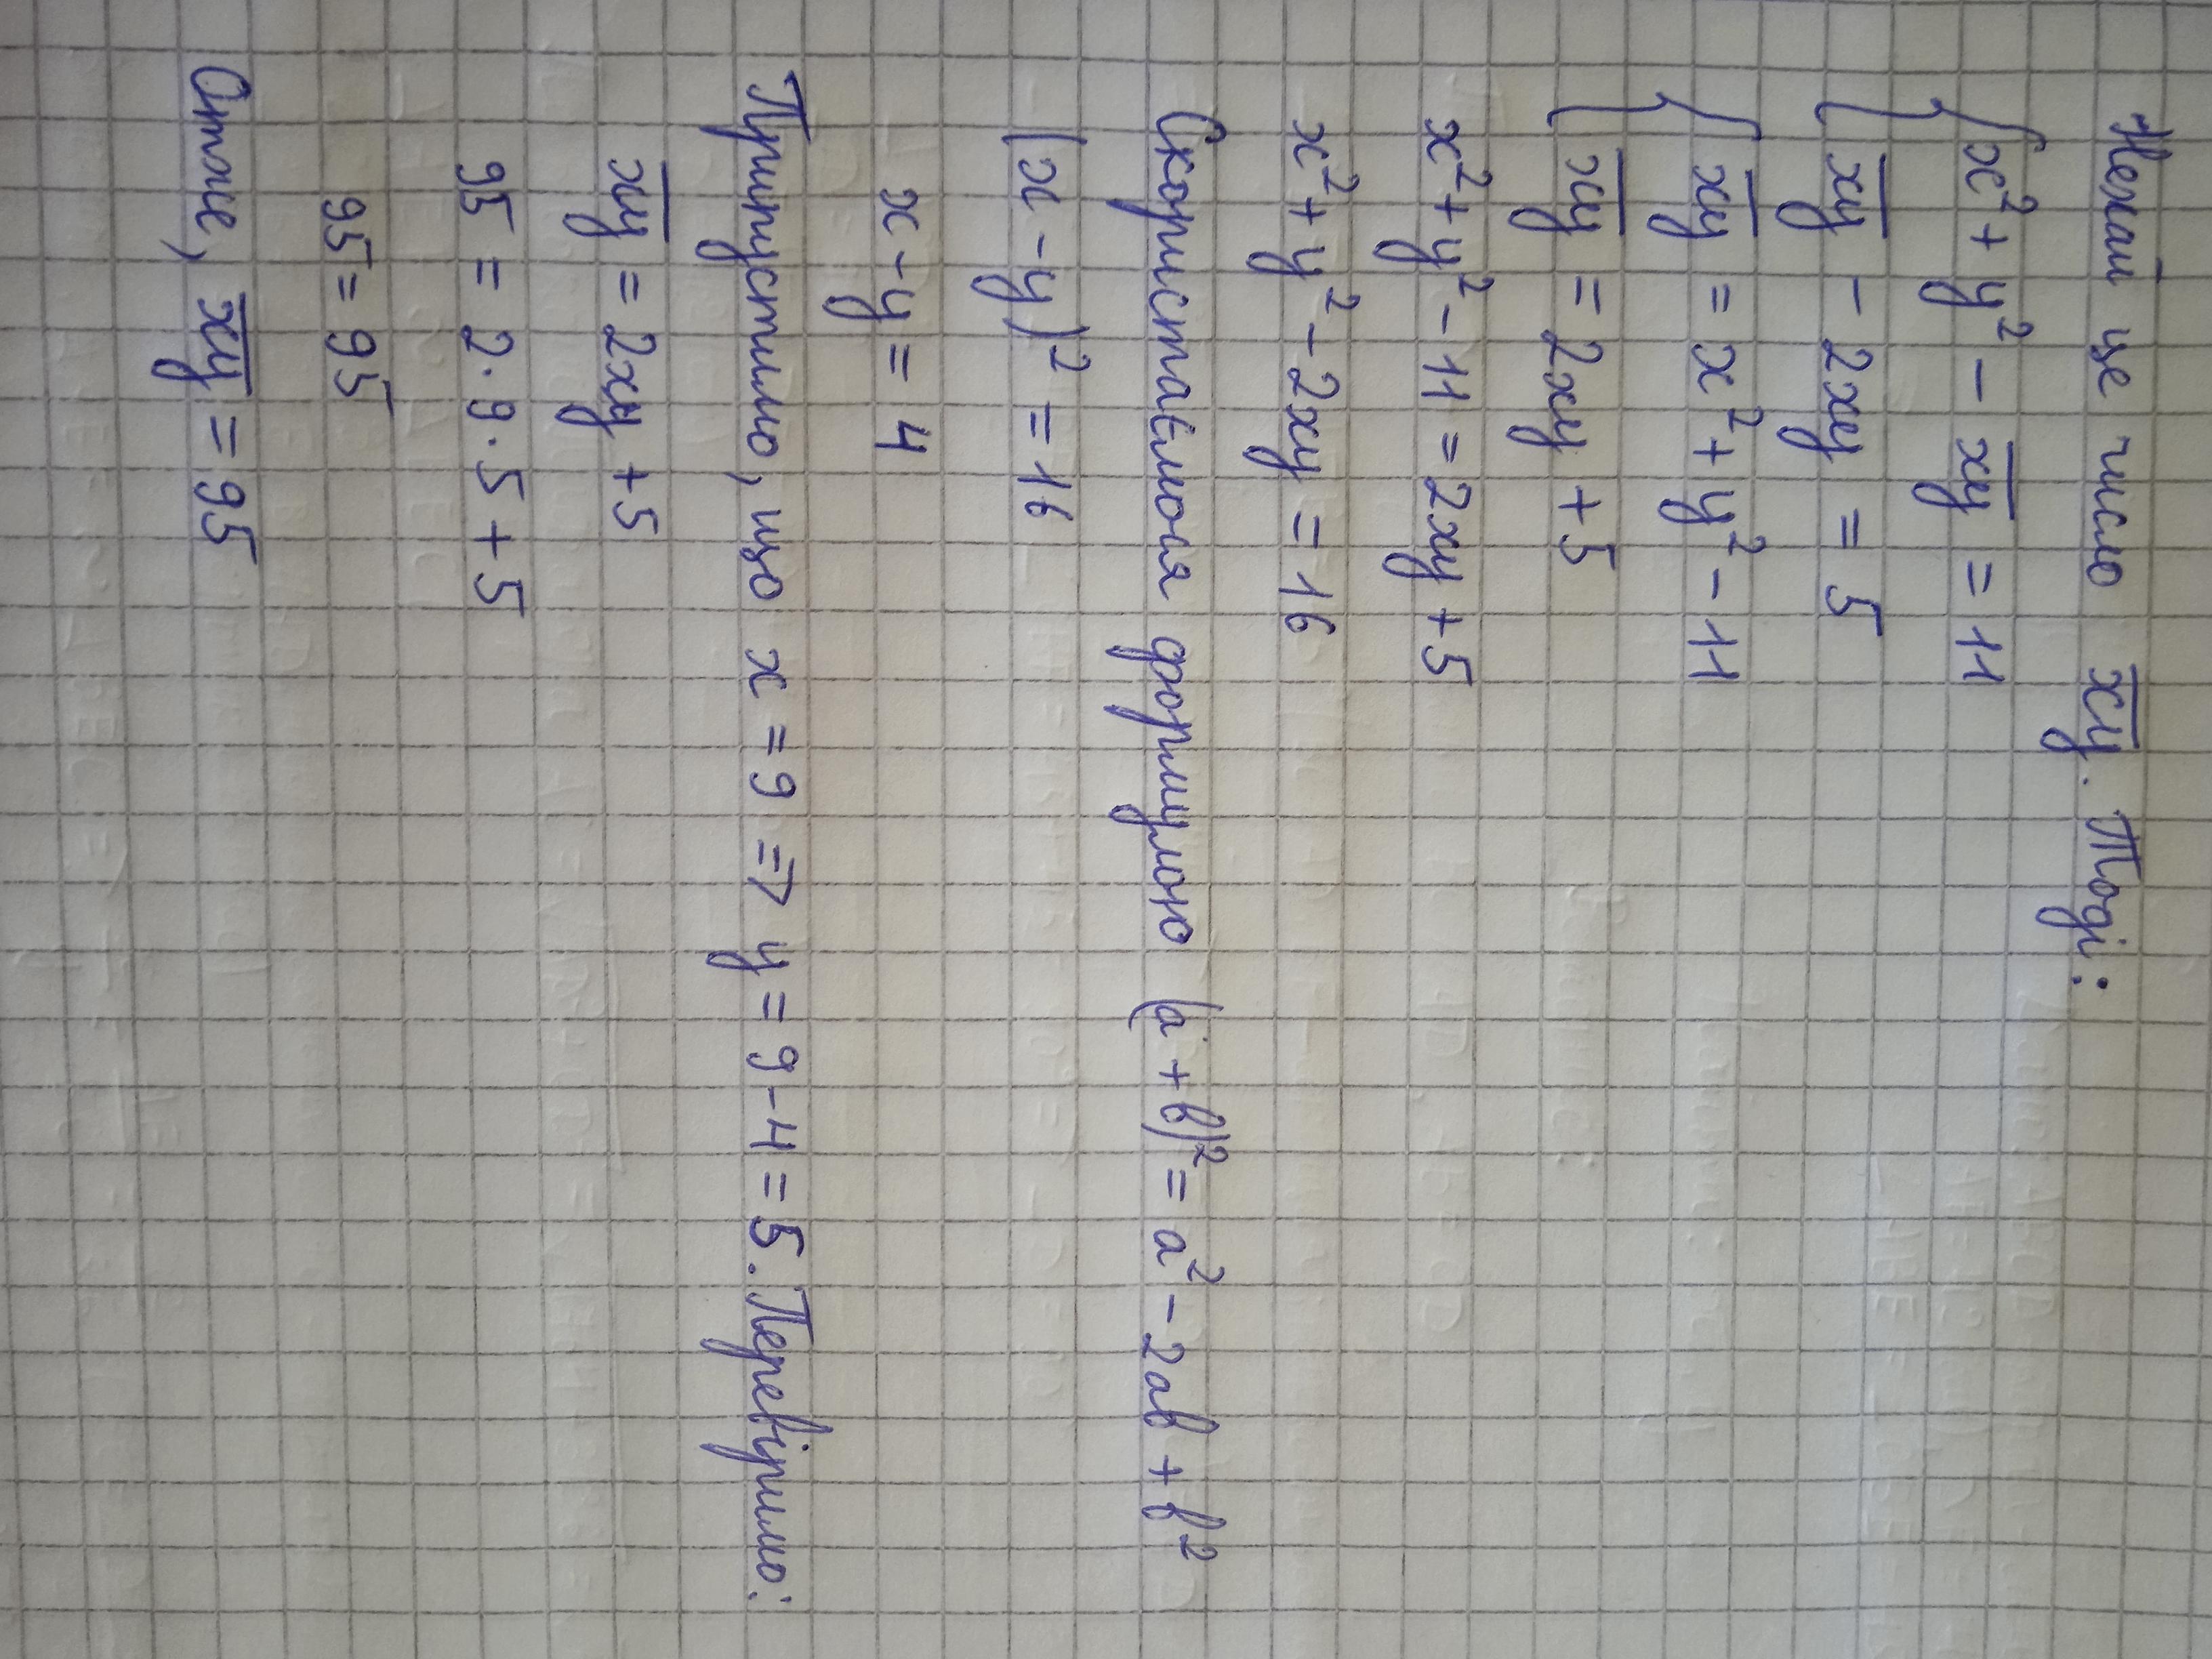 Нехай це число x̅y̅. Тоді:
{ x² + y² - x̅y̅ = 11
{ x̅y̅ - 2xy = 5
{ x̅y̅ = x² + y² - 11
{ x̅y̅ = 2xy + 5
x² + y² - 11 = 2xy + 5
x² + y² - 2xy = 16
Скористаємося формулою (a + b)² = a² - 2ab + b²
(x - y)² = 16
x - y = 4
Припустимо, що x = 9 => y = 9 - 4 = 5. Перевіримо:
x̅y̅ = 2xy + 5
95 = 2 · 9 · 5 + 5
95 = 95
Отже, x̅y̅ = 95